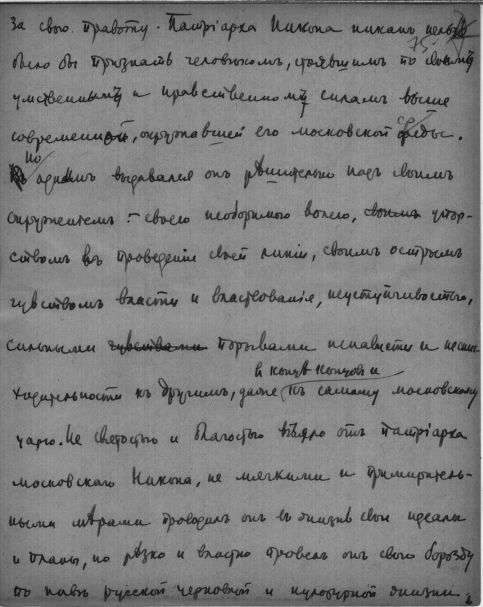 за свою правоту. Патріарха Никона никакъ нельзя
75.
было бы признать человѣкомъ, стоявшимъ по своимъ
умственнымъ и нравственнымъ силамъ выше
современной, окружавшей его московской среды.
но
однимъ выдавался онъ рѣшительно надъ своимъ
окруженіемъ – своею необоримою волею, своимъ упор-
ствомъ въ проведеніи своей линіи, своимъ острымъ
чувствомъ власти и властвованія, неуступчивостью,
сильными чувствами порывами ненависти и несни-
в концѣ концовъ и
ходительности къ другимъ, даже къ самому московскому
царю. Не святостью и благостью вѣяло отъ патріарха
московскаго Никона, не мягкими и примиритель-
ными мѣрами проводилъ онъ въ жизнь свои идеалы
и планы, но рѣзко и властно провелъ онъ свою борозду
по нивѣ русской церковной и культурной жизни